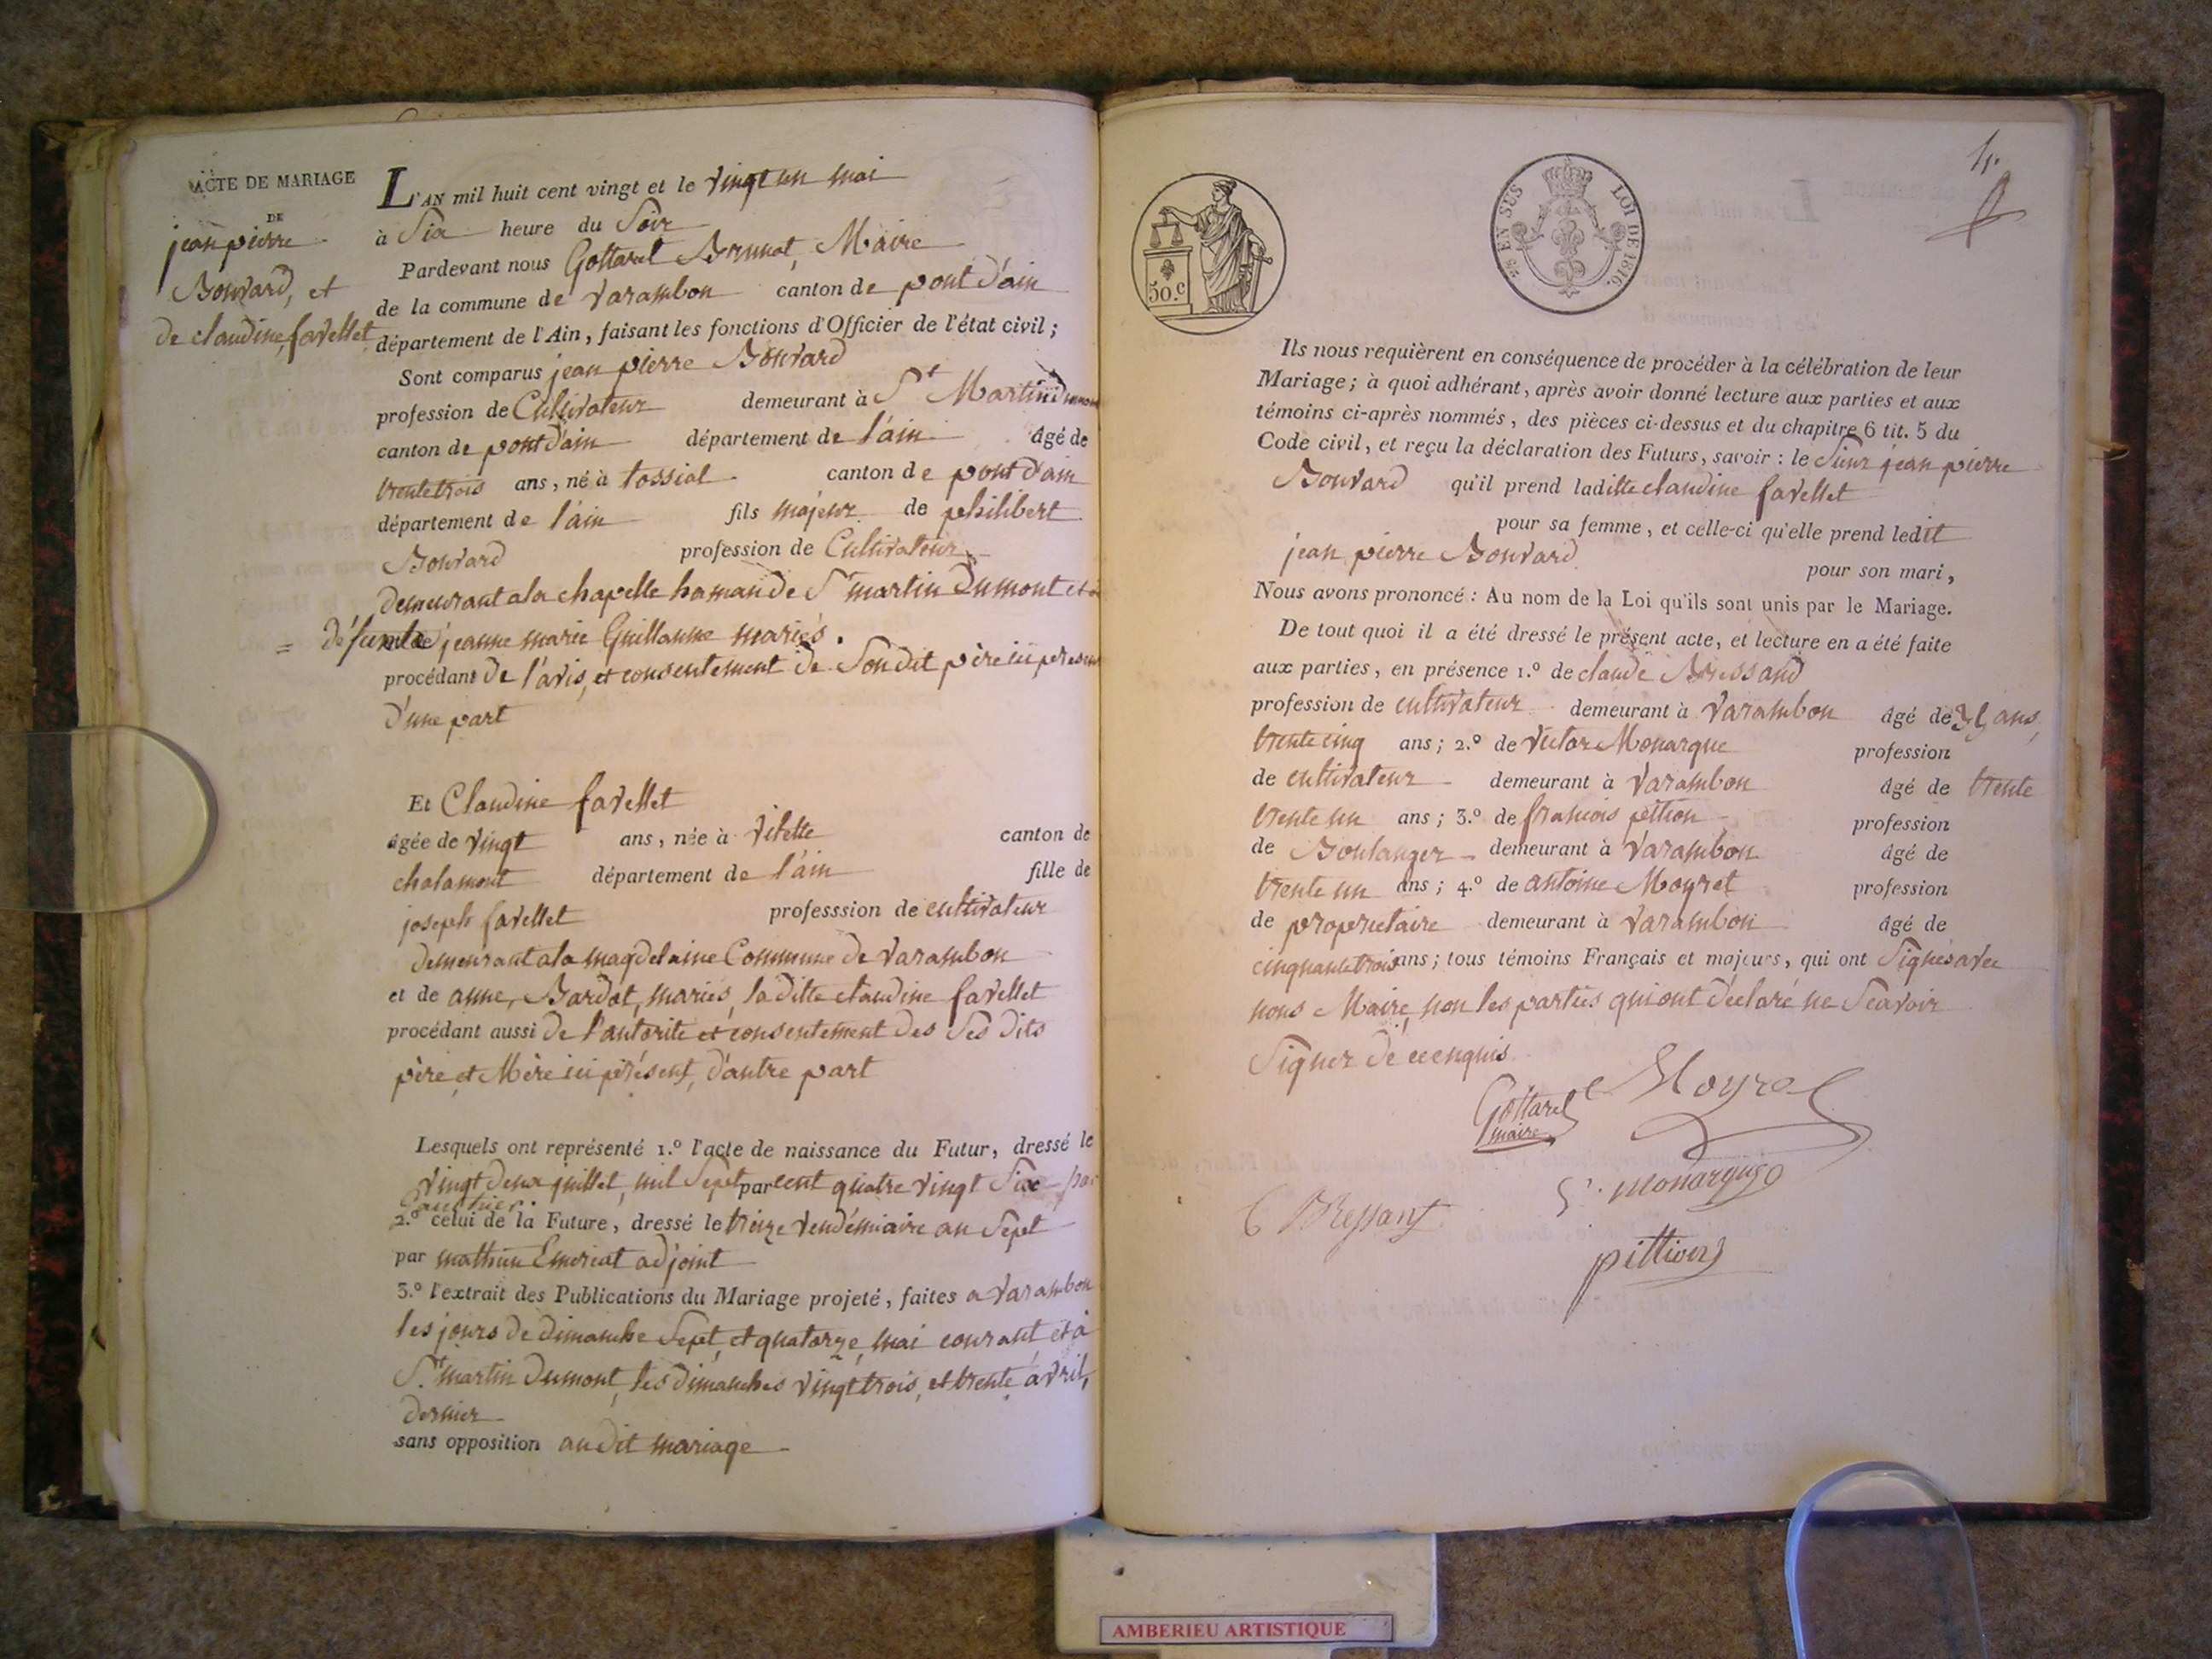 ACTE DE MARIAGE
DE
jean pierre
Bouvard, et
de claudine favellet
L'AN mil huit cent vingt et le vingt un mai
à Six heure du Soir
Pardevant nous Gottarel Brunot, Maire
de la commune de Varambon canton de pont d'ain
département de l'Ain, faisant les fonctions d'Officier de l'état civil;
Sont comparus jean pierre Bouvard
profession de Cultivateur demeurant à St Martin Dumont
canton de pont d'ain département de l'ain âgé de
trente trois ans, né à tossiat canton de pont d'ain
département de l'ain fils majeur de philibert
Bouvard profession de Cultivateur
demeurant a la chapelle hamau de St martin Dumont et à
= défunte jeanne marie Guillaume mariés.
procédant De l'avis, et consentement de Son dit père ici présent
d'une part
Et Claudine favellet
âgée de vingt ans, née à vilette canton de
chalamont département de l'ain fille de
joseph favellet professsion de cultivateur
demeurant a la magdelaine Commune de Varambon
et de anne Bardot, mariés, la ditte claudine favellet
procédant aussi de l'autorite et consentement des Ses dits
père, et Mère ici présent, d'autre part
Lesquels ont représenté 1.º l'acte de naissance du Futur, dressé le
vingt deux juillet, mil Sept par cent quatre vingt Six par
Gauthier.
2.º celui de la Future, dressé le treize vendémiaire an Sept
par mathieu Emeriat adjoint
3.º l'extrait des Publications du Mariage projeté, faites a Varambon
les jours de dimanche Sept, et quatorze, mai courant, et à
St martin Dumont, les dimanches vingt trois, et trente avril,
dernier
sans opposition au dit mariage
50.c
25 EN SUS
LOI DE 1816.
4.
Ils nous requièrent en conséquence de procéder à la célébration de leur
Mariage; à quoi adhérant, après avoir donné lecture aux parties et aux
témoins ci-après nommés, des pièces ci-dessus et du chapitre 6 tit. 5 du
Code civil, et reçu la déclaration des Futurs, savoir: le Sieur jean pierre
Bouvard qu'il prend laditte claudine favellet
pour sa femme, et celle-ci qu'elle prend ledit
jean pierre Bouvard
pour son mari,
Nous avons prononcé: Au nom de la Loi qu'ils sont unis par le Mariage.
De tout quoi il a été dressé le présent acte, et lecture en a été faite
aux parties, en présence 1.º de claude Bressand
profession de cultivateur demeurant à Varambon âgé de 35 ans,
trente cinq ans; 2.º de Victor Monarque profession
de cultivateur demeurant à Varambon âgé de trente
trente un ans; 3.º de francois pittion profession
de Boulanger demeurant à Varambon âgé de
trente un ans; 4.º de antoine Moyret profession
de proprietaire demeurant à Varambon âgé de
cinquante trois ans; tous témoins Français et majeurs, qui ont Signés avec
nous Maire, non les parties qui ont déclaré ne Scavoir
Signer de ce enquis
Gottarel Moyret
maire
monarque
C Bressant
pittion
AMBERIEU ARTISTIQUE